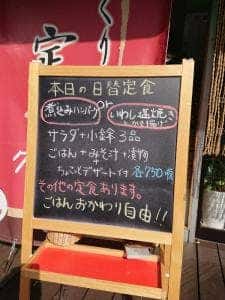 くり
定
本日の日替定食
煮込みハンバーグ or いわし塩焼き
サラダ+小鉢3品
ごはん+みそ汁+漬物
+
ちょこっとデザート付 各750円
その他の定食あります。
ごはんおかわり自由!!